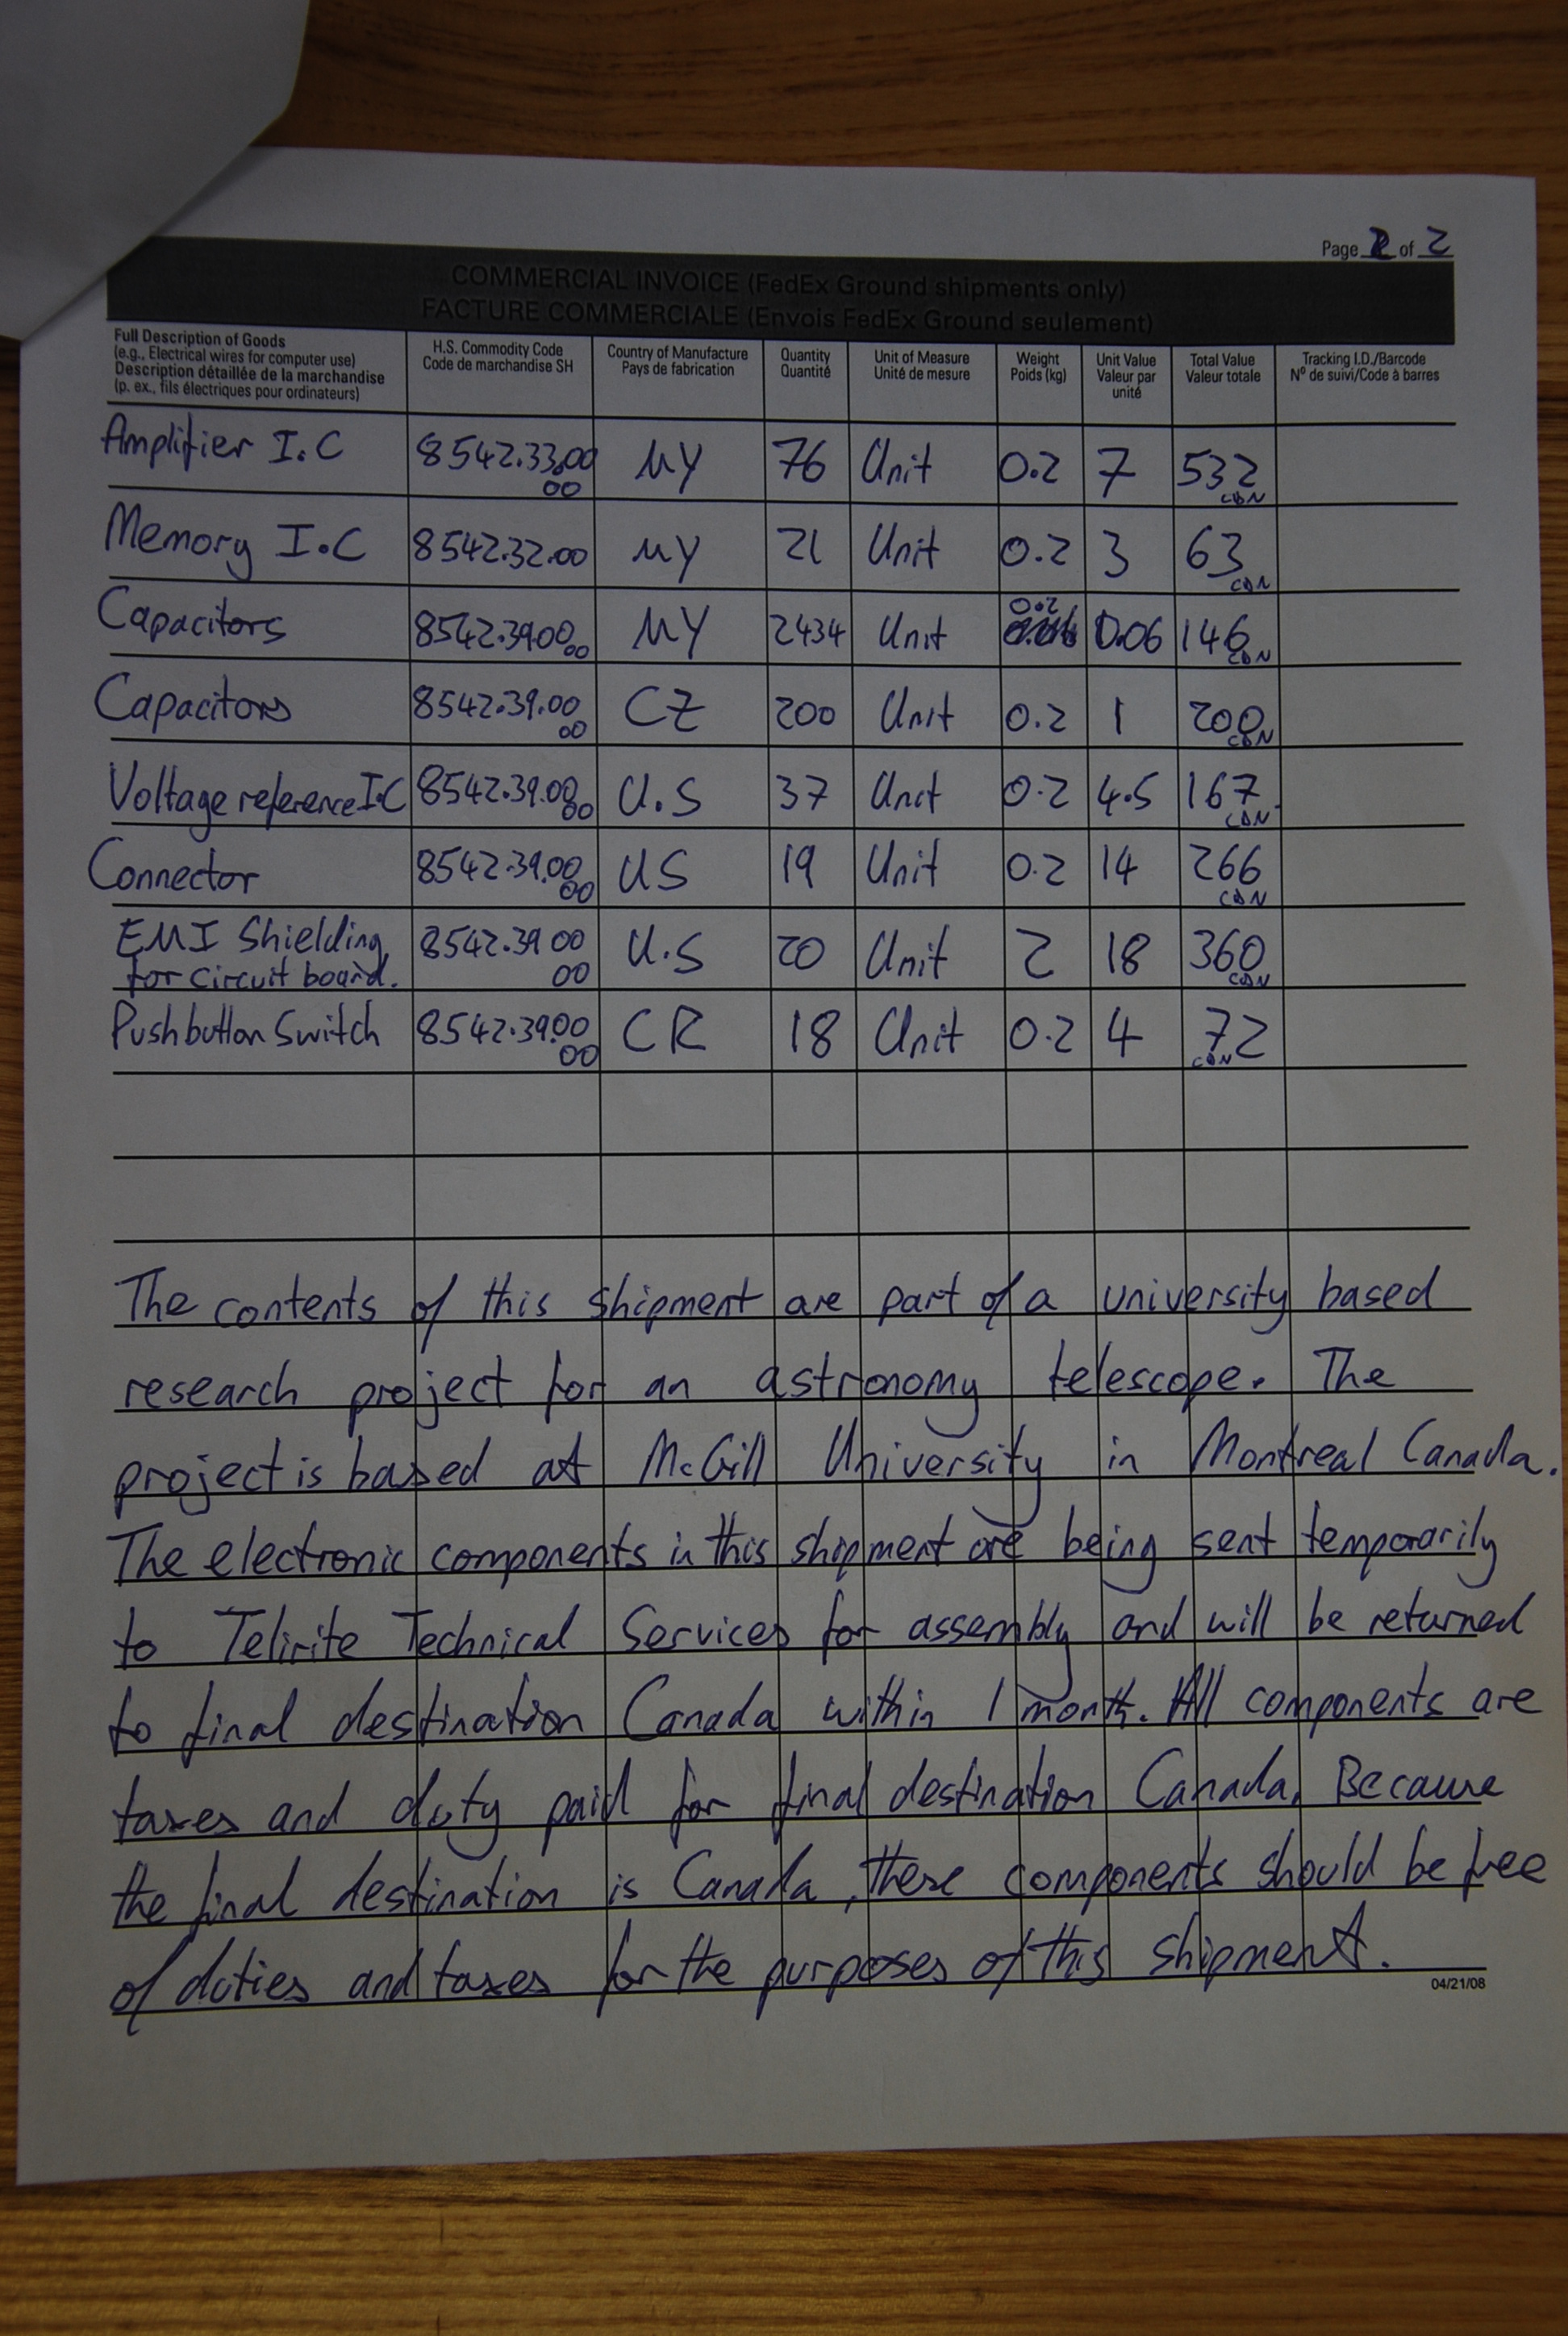 Page 2 of 2
COMMERCIAL INVOICE (FedEx Ground shipments only)
FACTURE COMMERCIALE (Envois FedEx Ground seulement)
Full Description of Goods
(e.g., Electrical wires for computer use)
Description détaillée de la marchandise
(p. ex., fils électriques pour ordinateurs)
H.S. Commodity Code
Code de marchandise SH
Country of Manufacture
Pays de fabrication
Quantity
Quantité
Unit of Measure
Unité de mesure
Weight
Poids (kg)
Unit Value
Valeur par
unité
Total Value
Valeur totale
Tracking I.D./Barcode
Nº de suivi/Code à barres
Amplifier I.C 8542.33.00 00 MY 76 Unit 0.2 7 532 CDN
Memory I.C 8542.32.00 MY 21 Unit 0.2 3 63 CDN
Capacitors 8542.39.00 00 MY 2434 Unit 0.2 0.06 146 CDN
Capacitors 8542.39.00 00 CZ 200 Unit 0.2 1 200 CDN
Voltage reference I.C 8542.39.00 00 U.S 37 Unit 0.2 4.5 167 CDN
Connector 8542.39.00 00 US 19 Unit 0.2 14 266 CDN
EMI Shielding for circuit board. 8542.39 00 00 U.S 20 Unit 2 18 360 CDN
Pushbutton Switch 8542.39.00 00 CR 18 Unit 0.2 4 72 CDN
The contents of this shipment are part of a university based
research project for an astronomy telescope. The
project is based at McGill University in Montreal Canada.
The electronic components in this shipment are being sent temporarily
to Telirite Technical Services for assembly and will be returned
to final destination Canada within 1 month. All components are
taxes and duty paid for final destination Canada. Because
the final destination is Canada, these components should be free
of duties and taxes for the purposes of this shipment.
04/21/08